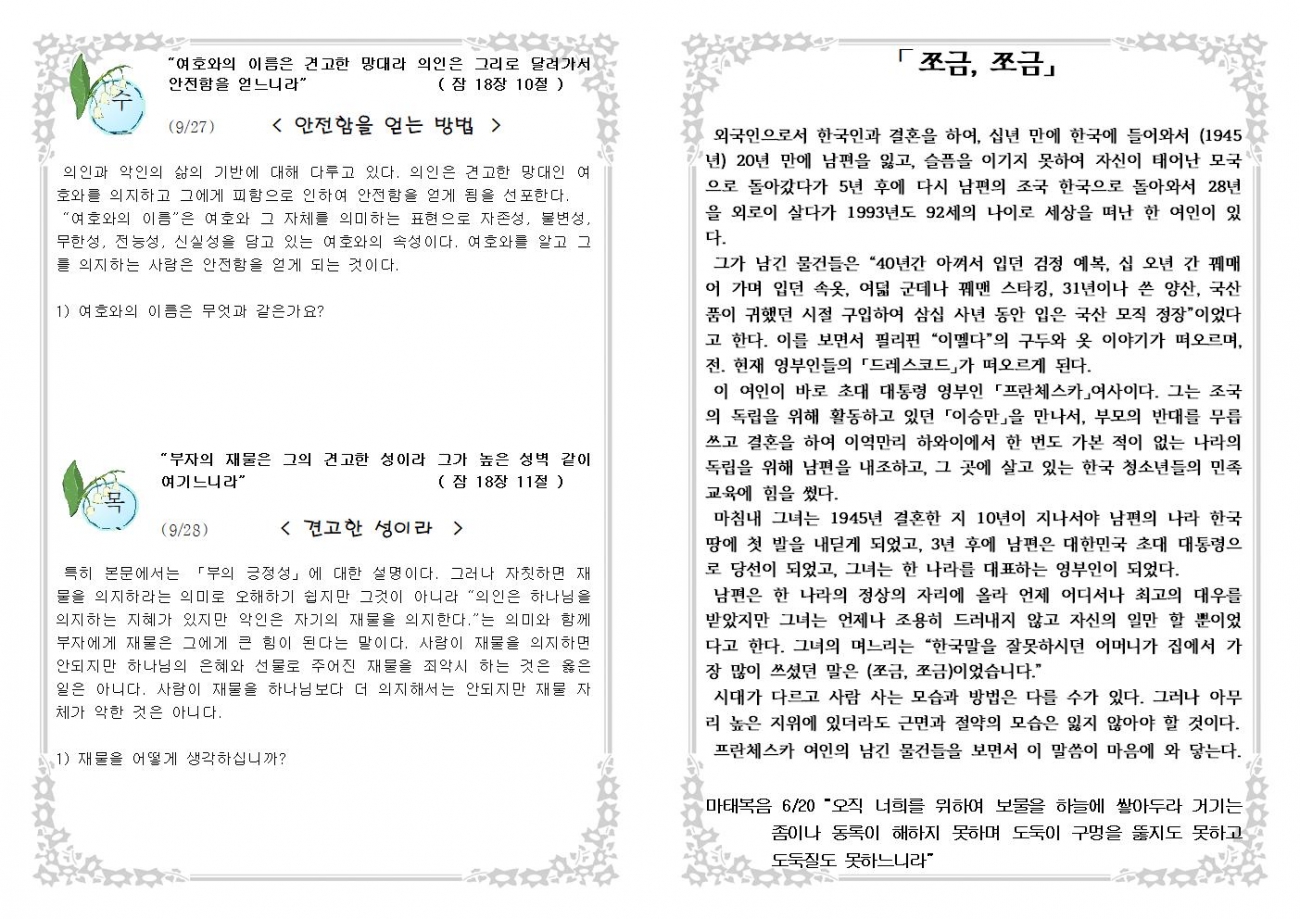 “여호와의 이름은 견고한 망대라 의인은 그리로 달려가서
안전함을 얻느니라” ( 잠 18장 10절 )
수
(9/27) < 안전함을 얻는 방법 >
의인과 악인의 삶의 기반에 대해 다루고 있다. 의인은 견고한 망대인 여
호와를 의지하고 그에게 피함으로 인하여 안전함을 얻게 됨을 선포한다.
“여호와의 이름”은 여호와 그 자체를 의미하는 표현으로 자존성, 불변성,
무한성, 전능성, 신실성을 담고 있는 여호와의 속성이다. 여호와를 알고 그
를 의지하는 사람은 안전함을 얻게 되는 것이다.
1) 여호와의 이름은 무엇과 같은가요?
“부자의 재물은 그의 견고한 성이라 그가 높은 성벽 같이
여기느니라” ( 잠 18장 11절 )
목
(9/28) < 견고한 성이라 >
특히 본문에서는 「부의 긍정성」에 대한 설명이다. 그러나 자칫하면 재
물을 의지하라는 의미로 오해하기 쉽지만 그것이 아니라 “의인은 하나님을
의지하는 지혜가 있지만 악인은 자기의 재물을 의지한다.”는 의미와 함께
부자에게 재물은 그에게 큰 힘이 된다는 말이다. 사람이 재물을 의지하면
안되지만 하나님의 은혜와 선물로 주어진 재물을 죄악시 하는 것은 옳은
일은 아니다. 사람이 재물을 하나님보다 더 의지해서는 안되지만 재물 자
체가 악한 것은 아니다.
1) 재물을 어떻게 생각하십니까?
「 쪼금, 쪼금」
외국인으로서 한국인과 결혼을 하여, 십년 만에 한국에 들어와서 (1945
년) 20년 만에 남편을 잃고, 슬픔을 이기지 못하여 자신이 태어난 모국
으로 돌아갔다가 5년 후에 다시 남편의 조국 한국으로 돌아와서 28년
을 외로이 살다가 1993년도 92세의 나이로 세상을 떠난 한 여인이 있
다.
그가 남긴 물건들은 “40년간 아껴서 입던 검정 예복, 십 오년 간 꿰매
어 가며 입던 속옷, 여덟 군데나 꿰맨 스타킹, 31년이나 쓴 양산, 국산
품이 귀했던 시절 구입하여 삼십 사년 동안 입은 국산 모직 정장”이었다
고 한다. 이를 보면서 필리핀 “이멜다”의 구두와 옷 이야기가 떠오르며,
전. 현재 영부인들의 「드레스코드」가 떠오르게 된다.
이 여인이 바로 초대 대통령 영부인 「프란체스카」여사이다. 그는 조국
의 독립을 위해 활동하고 있던 「이승만」을 만나서, 부모의 반대를 무릅
쓰고 결혼을 하여 이역만리 하와이에서 한 번도 가본 적이 없는 나라의
독립을 위해 남편을 내조하고, 그 곳에 살고 있는 한국 청소년들의 민족
교육에 힘을 썼다.
마침내 그녀는 1945년 결혼한 지 10년이 지나서야 남편의 나라 한국
땅에 첫 발을 내딛게 되었고, 3년 후에 남편은 대한민국 초대 대통령으
로 당선이 되었고, 그녀는 한 나라를 대표하는 영부인이 되었다.
남편은 한 나라의 정상의 자리에 올라 언제 어디서나 최고의 대우를
받았지만 그녀는 언제나 조용히 드러내지 않고 자신의 일만 할 뿐이었
다고 한다. 그녀의 며느리는 “한국말을 잘못하시던 어머니가 집에서 가
장 많이 쓰셨던 말은 (쪼금, 쪼금)이었습니다.”
시대가 다르고 사람 사는 모습과 방법은 다를 수가 있다. 그러나 아무
리 높은 지위에 있더라도 근면과 절약의 모습은 잃지 않아야 할 것이다.
프란체스카 여인의 남긴 물건들을 보면서 이 말씀이 마음에 와 닿는다.
마태복음 6/20 "오직 너희를 위하여 보물을 하늘에 쌓아두라 거기는
좀이나 동록이 해하지 못하며 도둑이 구멍을 뚫지도 못하고
도둑질도 못하느니라"